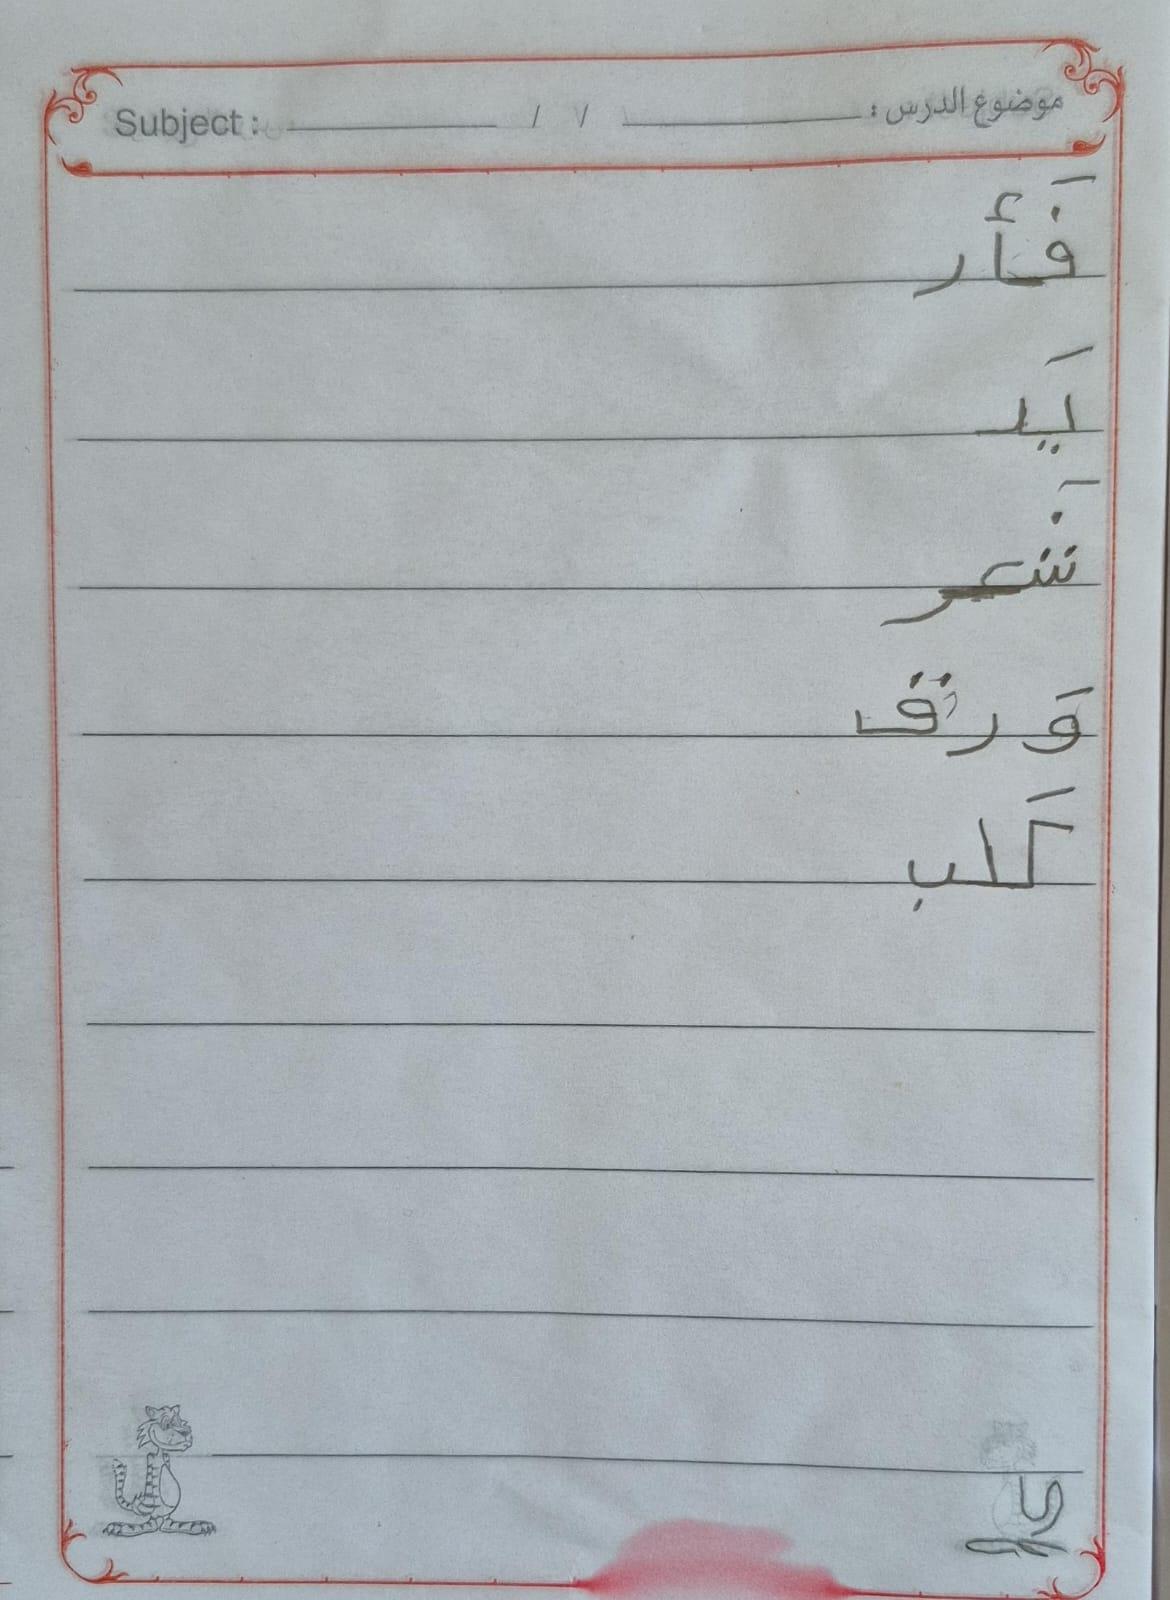 موضوع الدرس : / / Subject :
فَأر
يَد
شَعر
وَرق
كَلب